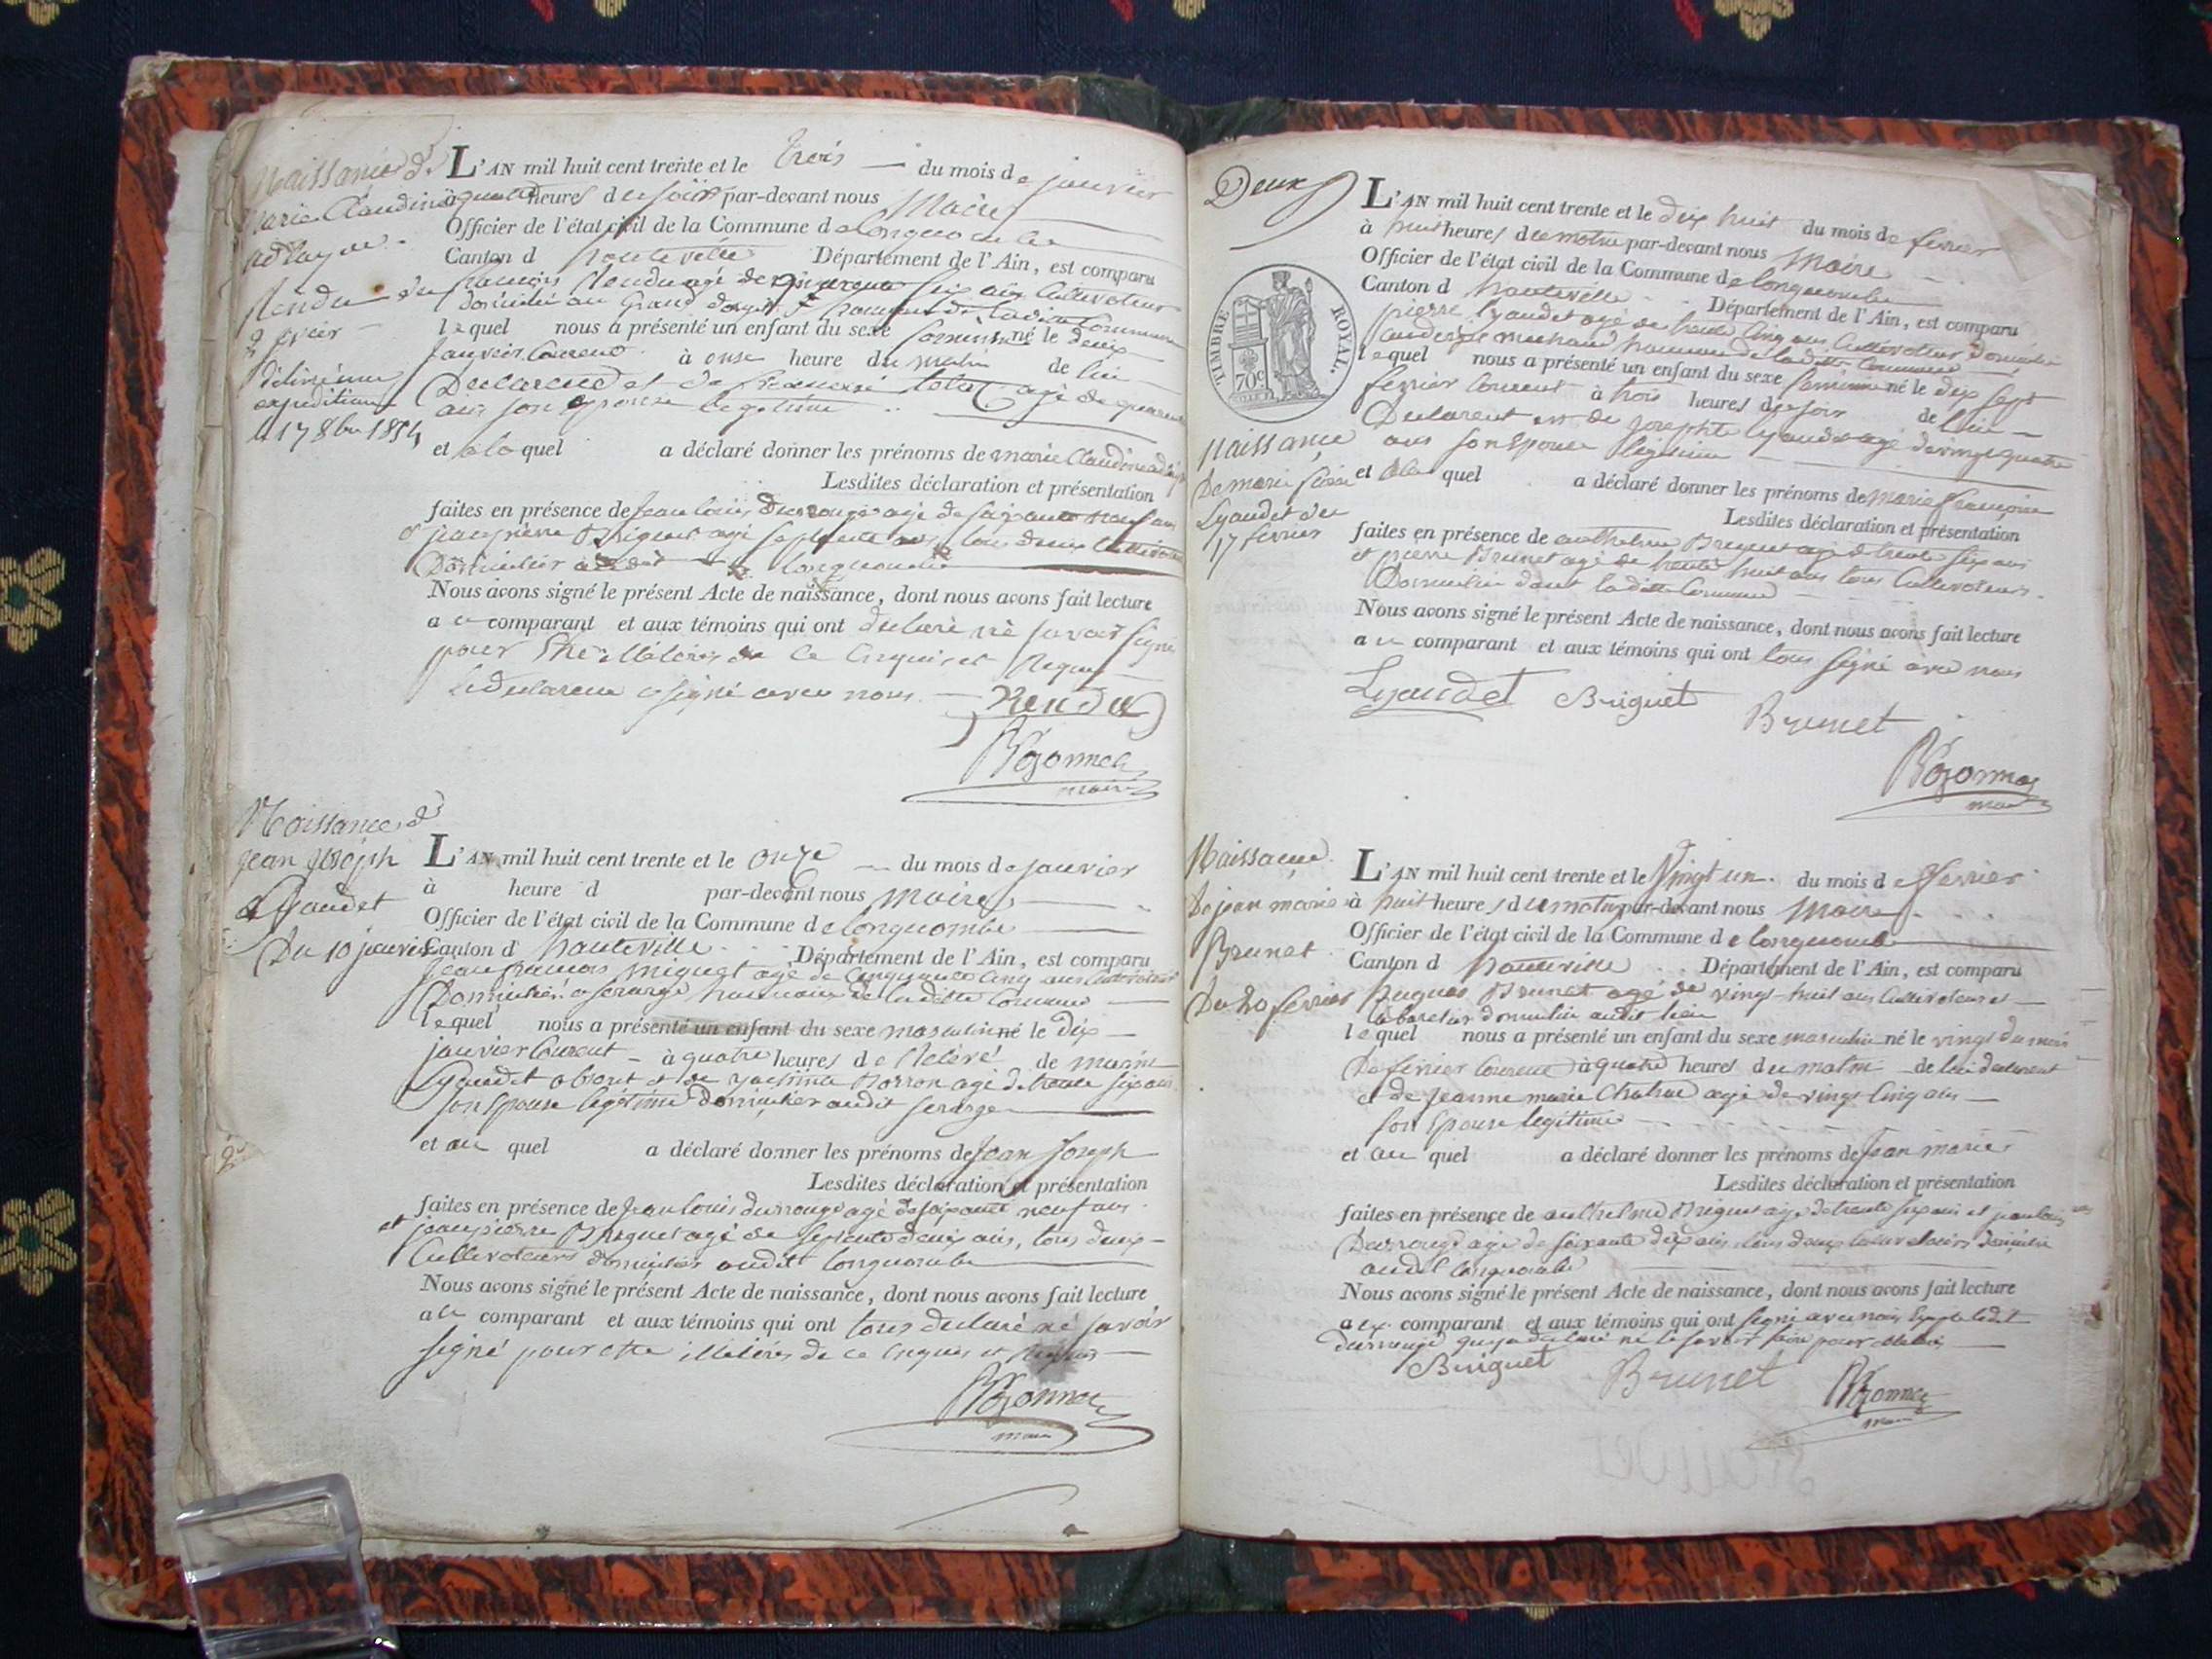 Naissance de
Marie Claudine
adelayde
Rendu du
2 janvier
Délivré une
expédition
le 17 8bre 1854
L'AN mil huit cent trente et le trois du mois de janvier
à quatre heures du soir par-devant nous Maire
Officier de l'état civil de la Commune de Longecombe
Canton d hauteville Département de l'Ain, est comparu
françois Rendu agé de cinquante six ans Cultivateur
domicilié au Grand hameau de ladite Commune
lequel nous a présenté un enfant du sexe féminin né le deux
janvier Courent à onze heure du matin de lui
Declarent et de agé de quarente
ans son epouse legitime
et a la quel a déclaré donner les prénoms de marie Claudine
Lesdites déclaration et présentation
faites en présence de Jean louis Durrouge agé de soixante neuf ans
et jean pierre Briguet agé septente ans tous deux Cultivateurs
Domiciliés Longecombe
Nous avons signé le présent Acte de naissance, dont nous avons fait lecture
a u comparant et aux témoins qui ont declaré ne savoir signé
pour être illétérés de ce Enquis et Requis
le declarent a signé avec nous Rendu
Maire
Naissance de
Jean Joseph
Lyaudet
Du 10 janvier
L'AN mil huit cent trente et le onze du mois de janvier
à heure d par-devant nous Maire
Officier de l'état civil de la Commune de Longecombe
Canton d hauteville Département de l'Ain, est comparu
Jean françois miguet agé de Cinquante Cinq ans Cultivateur
Domicilié a hameau de laditte Commune
lequel nous a présenté un enfant du sexe masculin né le dix
janvier Courent à quatre heures de Relevé de
Lyaudet absent et de agé de trente six ans
son Epouse légitime Domicilier audit
et au quel a déclaré donner les prénoms de Jean Joseph
Lesdites déclaration et présentation
faites en présence de Jean louis durrouge agé de soixante neuf ans
et jean pierre Briguet agé de septente deux ans, tous deux
Cultivateurs domiciliés audit Longecombe
Nous avons signé le présent Acte de naissance, dont nous avons fait lecture
a u comparant et aux témoins qui ont tous declaré ne savoir
signé pour être illétérés de ce Enquis et Requis
maire
Deux
TIMBRE ROYAL
70c
Naissance
De marie
Lyaudet du
17 fevrier
L'AN mil huit cent trente et le dix huit du mois de fevrier
à huit heures du matin par-devant nous Maire
Officier de l'état civil de la Commune de Longecombe
Canton d hauteville Département de l'Ain, est comparu
pierre Lyaudet agé de trente Cinq ans Cultivateur Domicilié
hameau de laditte Commune
lequel nous a présenté un enfant du sexe feminin né le dix sept
fevrier Courent à trois heures du soir de lui
Declarent et de josephte Lyaudet agé de vingt quatre
ans son Epouse légitime
et a la quel a déclaré donner les prénoms de marie françoise
Lesdites déclaration et présentation
faites en présence de anthelme Briguet agé de trente six ans
et pierre Brunet agé de trente huit ans tous Cultivateurs
Domicilié dans laditte Commune
Nous avons signé le présent Acte de naissance, dont nous avons fait lecture
a u comparant et aux témoins qui ont tous signé avec nous
Lyaudet Briguet Brunet
maire
Naissance
De jean marie
Brunet
Du 20 fevrier
L'AN mil huit cent trente et le Vingt un du mois de fevrier
à huit heures du matin par-devant nous Maire
Officier de l'état civil de la Commune de Longecombe
Canton d hauteville Département de l'Ain, est comparu
Brunet agé de vingt huit ans Cultivateur et
Cabaretier domicilié audit lieu
lequel nous a présenté un enfant du sexe masculin né le vingt du mois
De fevrier Courent à quatre heures du matin de lui declarent
et de Jeanne marie agé de vingt Cinq ans
son Epouse légitime
et au quel a déclaré donner les prénoms de Jean marie
Lesdites déclaration et présentation
faites en présence de anthelme Briguet agé de trente six ans et jean louis
Durrouge agé de soixante dix ans tous deux Cultivateurs domicilié
audit Longecombe
Nous avons signé le présent Acte de naissance, dont nous avons fait lecture
a ux comparant et aux témoins qui ont signé avec nous Excepté ledit
durrouge qui a declaré ne le savoir faire pour
Briguet Brunet
maire